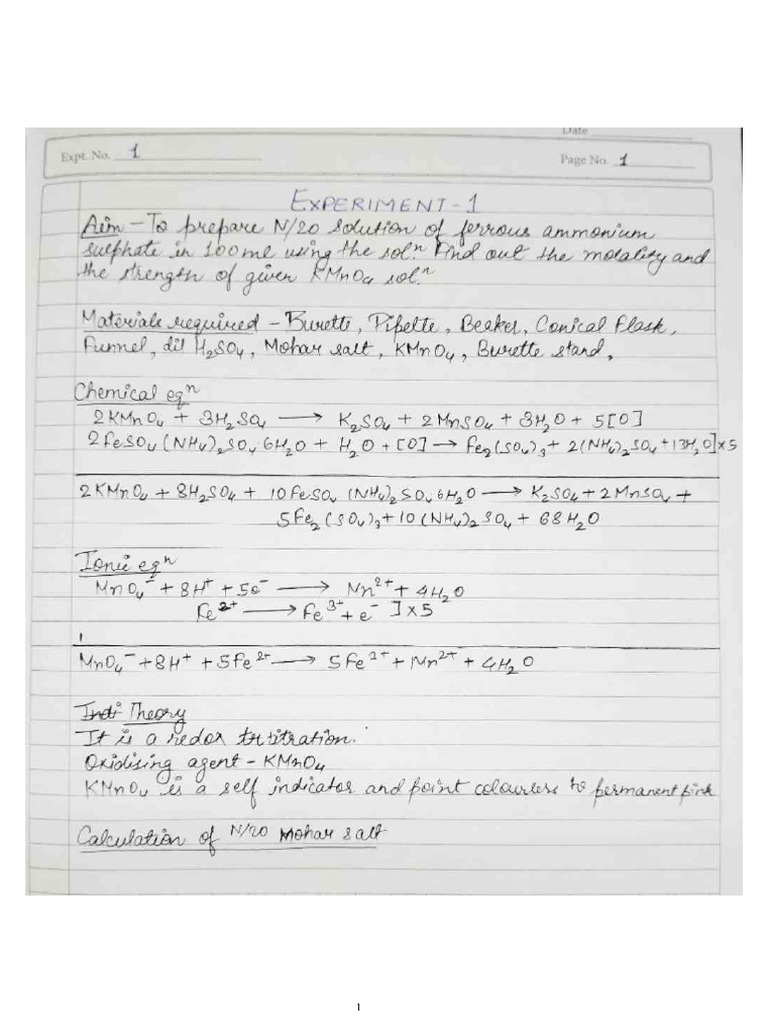 Date
Expt. No. 1
Page No. 1
EXPERIMENT-1
Aim - To prepare N/20 solution of ferrous ammonium
sulphate in 100ml using the solⁿ. Find out the molality and
the strength of given KMnO₄ solⁿ.
Materials required - Burette, Pipette, Beaker, Conical Flask,
Funnel, dil H₂SO₄, Mohar salt, KMnO₄, Burette stand,
Chemical eqⁿ
2KMnO₄ + 3H₂SO₄ ⟶ K₂SO₄ + 2MnSO₄ + 3H₂O + 5[O]
2FeSO₄(NH₄)₂SO₄·6H₂O + H₂O + [O] ⟶ Fe₂(SO₄)₃ + 2(NH₄)₂SO₄ + 13H₂O] × 5
2KMnO₄ + 8H₂SO₄ + 10FeSO₄(NH₄)₂SO₄6H₂O ⟶ K₂SO₄ + 2MnSO₄ +
5Fe₂(SO₄)₃ + 10(NH₄)₂SO₄ + 68H₂O
Ionic eqⁿ
MnO₄⁻ + 8H⁺ + 5e⁻ ⟶ Mn²⁺ + 4H₂O
Fe²⁺ ⟶ Fe³⁺ + e⁻ ] × 5
MnO₄⁻ + 8H⁺ + 5Fe²⁺ ⟶ 5Fe²⁺ + Mn²⁺ + 4H₂O
Theory
It is a redox titration.
Oxidising agent - KMnO₄
KMnO₄ is a self indicator and point colourless to permanent pink
Calculation of N/20 Mohar salt
1